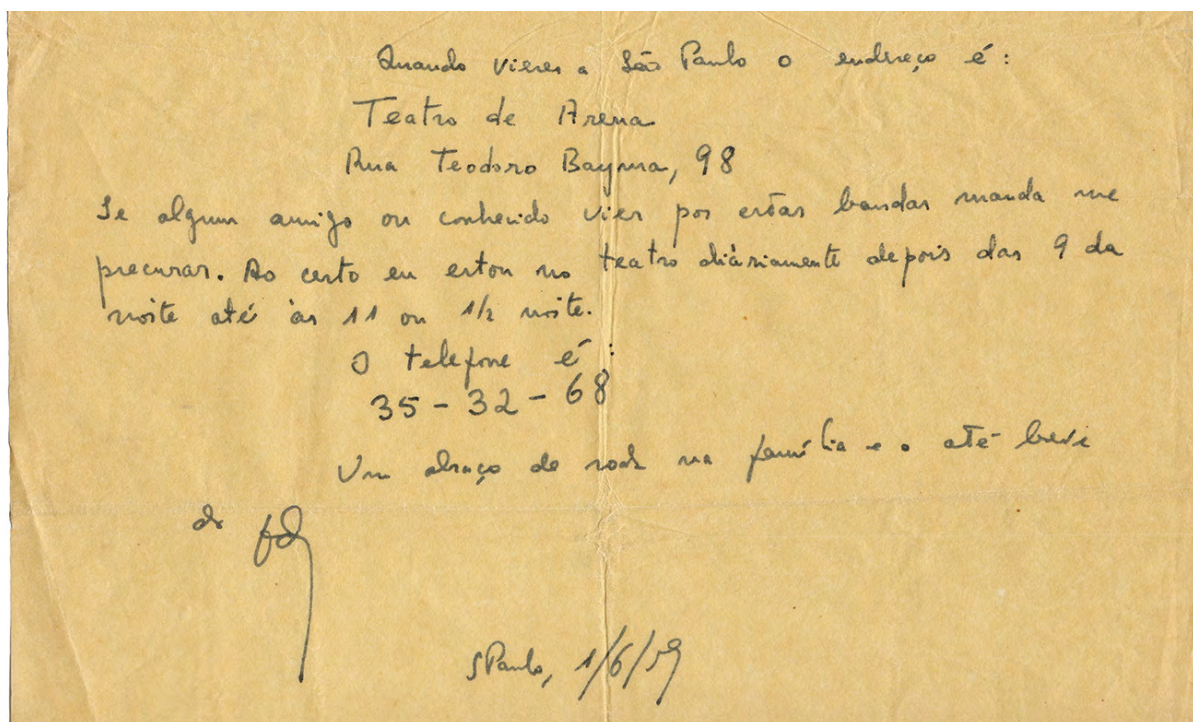 Quando vieres a São Paulo o endereço é:
Teatro de Arena
Rua Teodoro Bayma, 98
Se algum amigo ou conhecido vier por estas bandas manda me
procurar. Ao certo eu estou no teatro diàriamente depois das 9 da
noite até às 11 ou 1/2 noite.
O telefone é:
35-32-68
Um abraço de roda na família e o até breve
do
SPaulo, 1/6/59